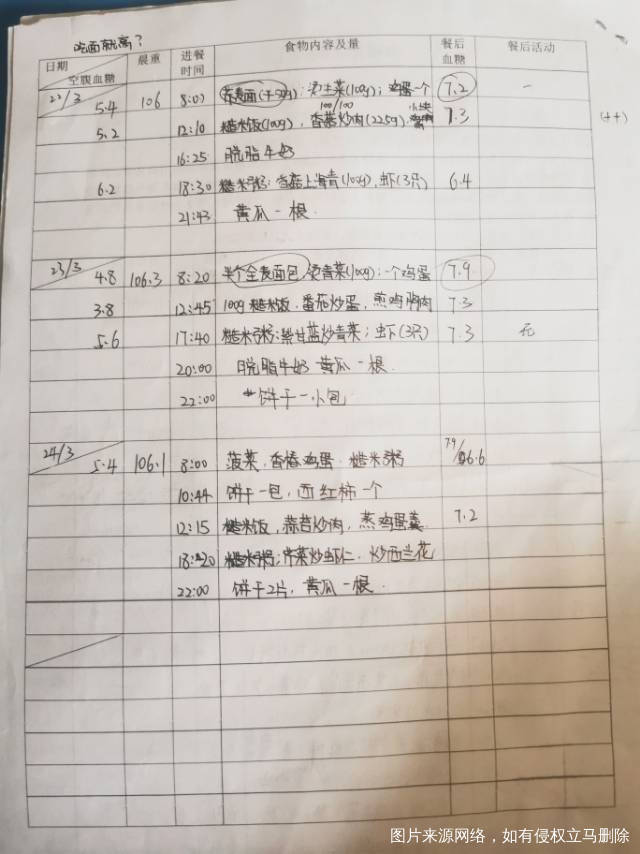 吃面就高？
日期 空腹血糖 晨重 进餐时间 食物内容及量 餐后血糖 餐后活动
22/3 5.4 106 8:07 荞麦面(干50g)；烫生菜(100g)；鸡蛋一个 7.2 -
100/100
5.2 12:10 糙米饭(100g)，香菇炒肉(225g) 7.3 (++)
16:25 脱脂牛奶
6.2 18:30 糙米粥；香菇上海青(100g)，虾(3只) 6.4
21:43 黄瓜一根.
23/3 4.8 106.3 8:20 半个全麦面包，烫青菜(100g)；一个鸡蛋 7.9
3.8 12:45 100g糙米饭，番茄炒蛋，蒸鸡胸肉 7.3
5.6 17:40 糙米粥；紫甘蓝炒青菜；虾(3只) 7.3
20:00 脱脂牛奶 黄瓜一根.
22:00 饼干一小包
24/3 5.4 106.1 8:00 菠菜，香椿鸡蛋，糙米粥 7.9/6.6
10:44 饼干一包，西红柿一个
12:15 糙米饭，蒜苔炒肉，蒸鸡蛋羹 7.2
18:20 糙米粥；芹菜炒虾仁，炒西兰花
22:00 饼干2片，黄瓜一根.
图片来源网络，如有侵权立马删除